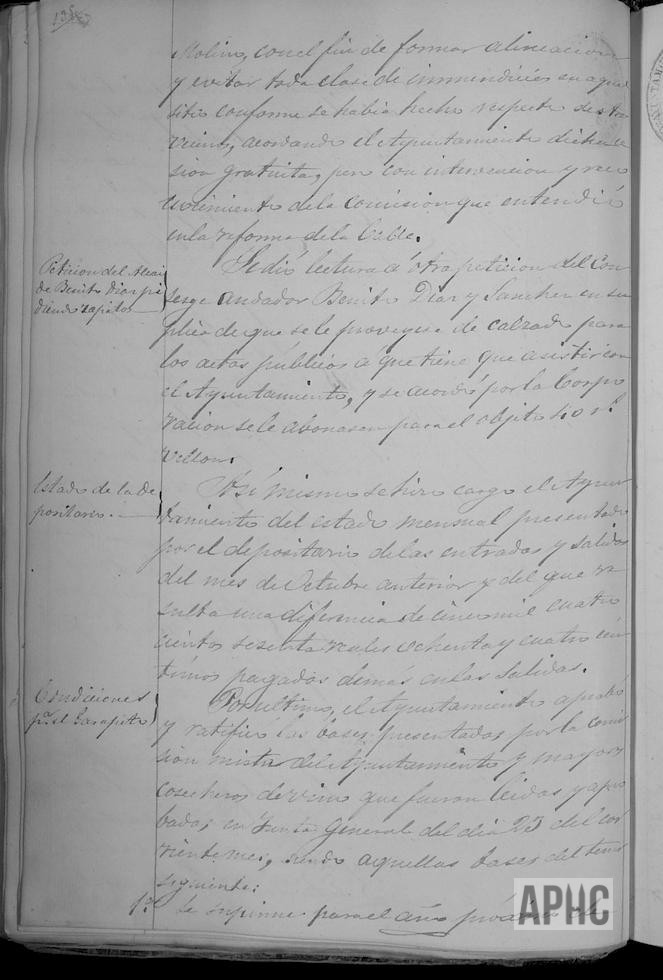 135
Molino, con el fin de formar alineacion
y evitar toda clase de inmundicies en aquel
sitio conforme se habia hecho respecto de otros
vecinos, acordando el Ayuntamiento dicha ce
sion gratuita, pero con intervencion y reco
nocimiento de la Comision que entendió
en la reforma de la Calle.
Peticion del Alcai
de Benito Diaz pi
diendo zapatos
Se dió lectura á otra peticion del Con
serge andador Benito Diaz y Sanchez en su
plica de que se le proveyese de calzado para
los actos públicos a que tiene que asistir con
el Ayuntamiento, y se acordó por la Corpo
racion se le abonasen para el objeto 40 rs.
vellon.
Estado de la De
positaria.
Asi mismo se hizo cargo el Ayun
tamiento del estado mensual presentado
por el depositario de las entradas y salidas
del mes de Octubre anterior y del que re
sulta una diferencia de cinco mil cuatro
cientos sesenta reales ochenta y cuatro cen
timos pagados demás en las salidas.
Condiciones
pa. el Garapito
Por ultimo, el Ayuntamiento aprobó
y ratificó las bases presentadas por la comi
sion mista del Ayuntamiento y mayores
Cosecheros de vino que fueron leidas y apro
badas en Junta General del dia 25 del cor
riente mes, siendo aquellas bases del tenor
siguiente:
1a. Se suprime para el año próximo de
APHC